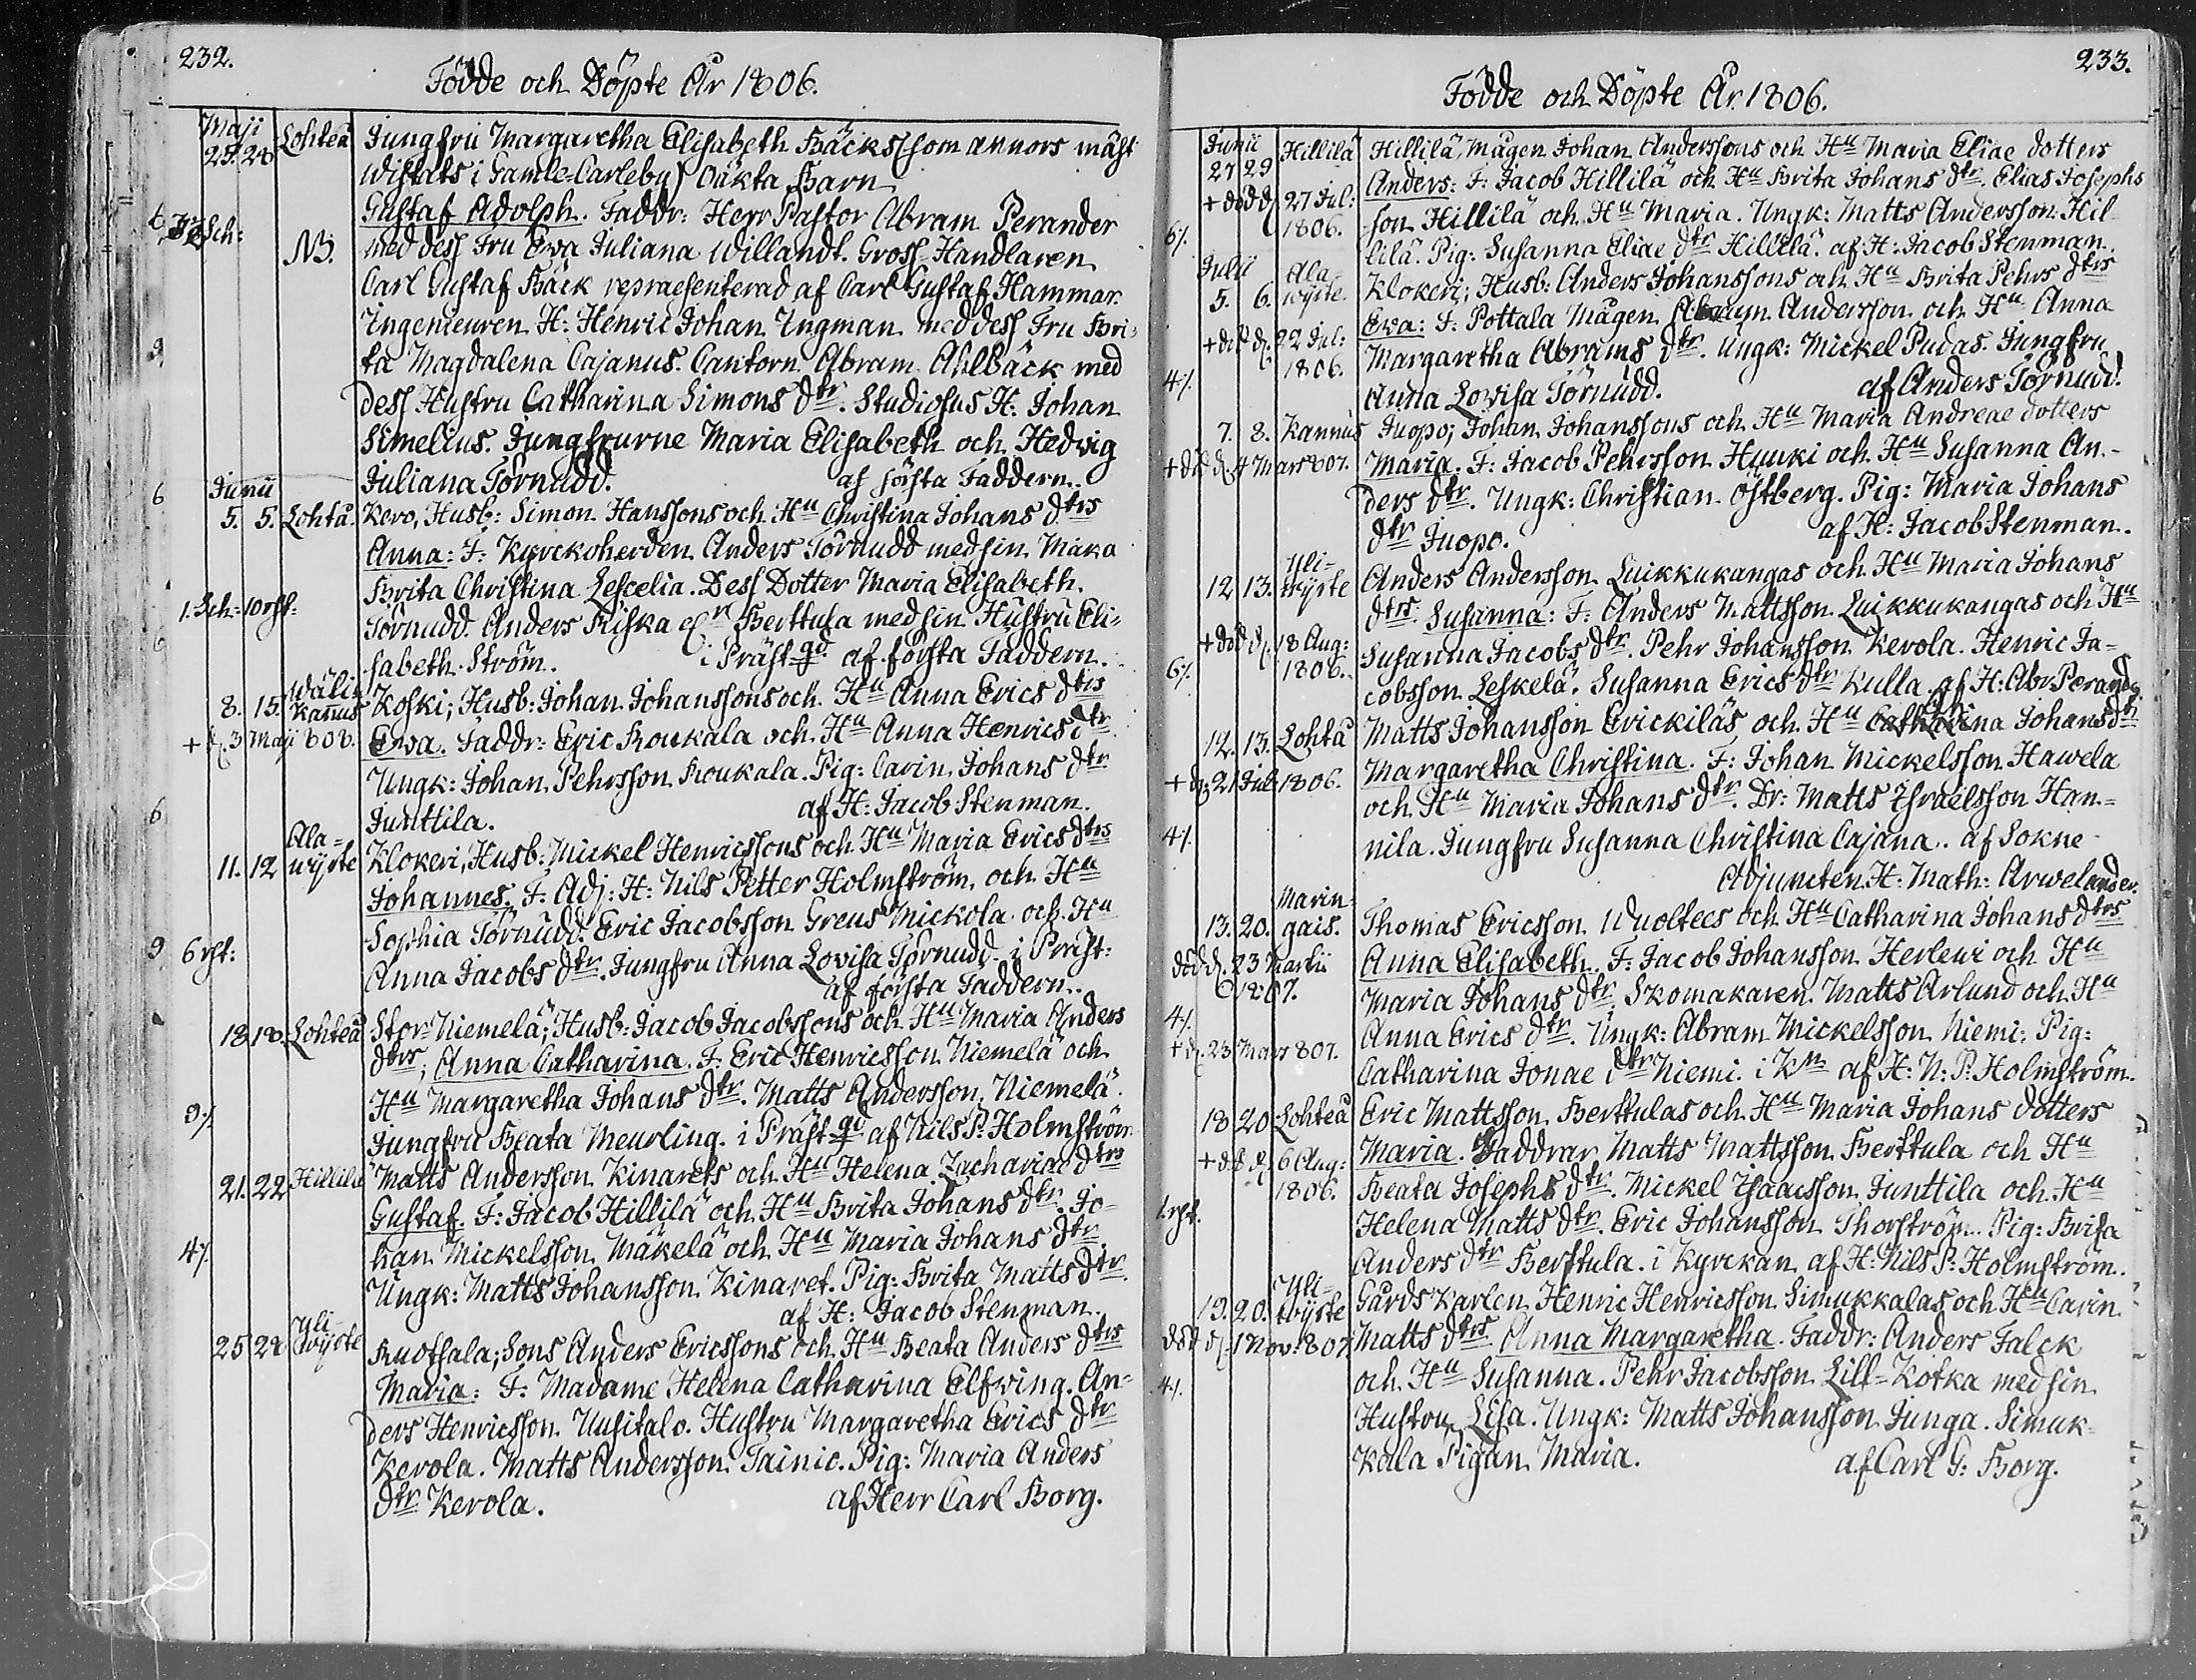 232.
Födde och Döpte År 1806.
Maji
25. 28 Lohteå Jungfru Margaretha Elisabeth Bäcks (som annors mäst
wistats i Gamle-Carleby) Oäkta Barn
Gustaf Adolph. Faddr: Herr Pastor Abram Perander
NB. med dess Fru Ewa Juliana Willandt. Gross-Handlaren
Carl Gustaf Bäck repraesenterad af Carl Gustaf Hammar.
Ingenieuren H: Henric Johan Ingman med dess Fru Bri-
ta Magdalena Cajanus. Cantorn Abram Ahlbäck med
dess Hustru Catharina Simons dtr. Studiosus H: Johan
Simelius. Jungfrurne Maria Elisabeth och Hedvig
Juliana Törnudd. af första Faddern.
Junii
5. 5. Lohtå. Kero, Husb: Simon Hanssons och Hu Christina Johans dtrs
Anna: F: Kyrckoherden Anders Törnudd med sin Maka
Brita Christina Lescelia. Dess Dotter Maria Elisabeth
1. Sch: 10 rst: Törnudd. Anders Riska och Berttula med sin Hustru Eli-
sabeth Ström. i Prästgd af första Faddern.
8. 15. Wäli Kanus Koski; Husb: Johan Johanssons och Hu Anna Erics dtrs
+ d. 3 Maji 808. Ewa. Faddr: Eric Roukala och Hu Anna Henrics dtr
Ungk: Johan Pehrsson Roukala. Pig: Carin Johans dtr
Junttila. af H: Jacob Stenman.
11. 12 Ala=wijste Klokeri, Husb: Mickel Henricssons och Hu Maria Erics dtrs
Johannes. F: Adj: H: Nils Petter Holmström och Hu
Sophia Törnudd. Eric Jacobsson Greus Mickola och Hu
6 rst: Anna Jacobs dtr. Jungfru Anna Lovisa Törnudd i Präst:
af första Faddern.
18 18. Lohteå Stor-Niemelä; Husb: Jacob Jacobssons och Hu Maria Anders
dtrs; Anna Catharina. F: Eric Henricsson Niemelä och
Hu Margaretha Johans dtr. Matts Andersson Niemelä.
9/. Jungfru Beata Meurling. i Prästgd af Nils P: Holmström
21. 22 Hillilä Matts Andersson Kinarets och Hu Helena Zachariae dtrs
Gustaf. F: Jacob Hillilä och Hu Brita Johans dtr. Jo-
4/. han Mickelsson Mäkelä och Hu Maria Johans dtr
Ungk: Matts Johansson Kinaret. Pig: Brita Matts dtr.
af H: Jacob Stenman.
25 28 Yli-wijste Ruotsala; Sons Anders Ericssons och Hu Beata Anders dtrs
Maria: F: Madame Helena Catharina Elfwing. An-
ders Henricsson Uusitalo. Hustru Margaretha Erics dtr
Kerola. Matts Andersson Tainic. Pig: Maria Anders
dtr Kerola. af Herr Carl Borg.
233.
Födde och Döpte År. 1806.
Junii
27 29 Hillilä Hillilä, mågen Johan Anderssons och Hu Maria Eliae dotters
+ död d. 27 Jul: Anders: F: Jacob Hillilä och Hu Brita Johans dtr. Elias Josephs
6/. 1806. son Hillilä och Hu Maria. Ungk: Matts Andersson Hil-
lilä. Pig: Susanna Eliae dtr Hillilä. af H: Jacob Stenman.
Julii
5. 6. Ala-wijste. Klokeri; Husb: Anders Johanssons och Hu Brita Pehrs dtrs
+ död d. 22 Jul: Ewa: F: Pottala Mågen Abram Andersson och Hu Anna
1806. Margaretha Abrams dtr. Ungk: Mickel Pudas. Jungfru
4/. Anna Lovisa Törnudd. af Anders Törnudd.
7. 8. Kannus Juopo; Johan Johanssons och Hu Maria Andreae dotters
+ död d. 4 Mars 807. Maria. F: Jacob Pehrsson Huuki och Hu Susanna An-
ders dtr. Ungk: Christian Östberg. Pig: Maria Johans
dtr Juopo. af H: Jacob Stenman.
12 13. Yli-wijste Anders Andersson Luikkukangas och Hu Maria Johans
dtrs. Susanna: F: Anders Mattsson Luikkukangas och Hu
+ död d. 18 Aug: Susanna Jacobs dtr. Pehr Johansson Kerola. Henric Ja-
6/. 1806. cobsson Leskelä. Susanna Erics dtr Kulla. af H: Abr. Perander.
12. 13. Lohtå Matts Johansson Erickiläs och Hu Catharina Johans dtr
+ d. 21 Jul 1806. Margaretha Christina. F: Johan Mickelsson Hawela
och Hu Maria Johans dtr. Dr: Matts Israelsson Han-
4/. nila. Jungfru Susanna Christina Cajana. af Sokne
Adjuncten H: Math: Arwelander.
13. 20. Marin-gais. Thomas Ericsson Wuoltees och Hu Catharina Johans dtrs
död d. 23 Martii Anna Elisabeth. F: Jacob Johansson Herlewi och Hu
1807. Maria Johans dtr. Skomakaren Matts Arlund och Hu
4/. Anna Erics dtr. Ungk: Abram Mickelsson Niemi. Pig:
+ d. 23 Mars 807. Catharina Jonae dtr Niemi. i Kn af H: N: P: Holmström.
18 20 Lohteå Eric Mattsson Berttulas och Hu Maria Johans dotters
+ död d. 6 Aug: Maria. Faddrar Matts Mattsson Berttula och Hu
1806. Beata Josephs dtr. Mickel Isaacsson Junttila och Hu
1. rst. Helena Matts dtr. Eric Johansson Thorström. Pig: Brita
Anders dtr Berttula. i Kyrckan af H: Nils P: Holmström.
19. 20. Yli-wijste Gårds Karlen Henric Henricsson Simukkalas och Hu Carin
död d. 1 Nov. 807. Matts dtrs Anna Margaretha. Faddr: Anders Falck
4/. och Hu Susanna. Pehr Jacobsson Lill-Kotka med sin
Hustru Lisa. Ungk: Matts Johansson Junga. Simuk-
kala Pigan Maria. af Carl G: Borg.